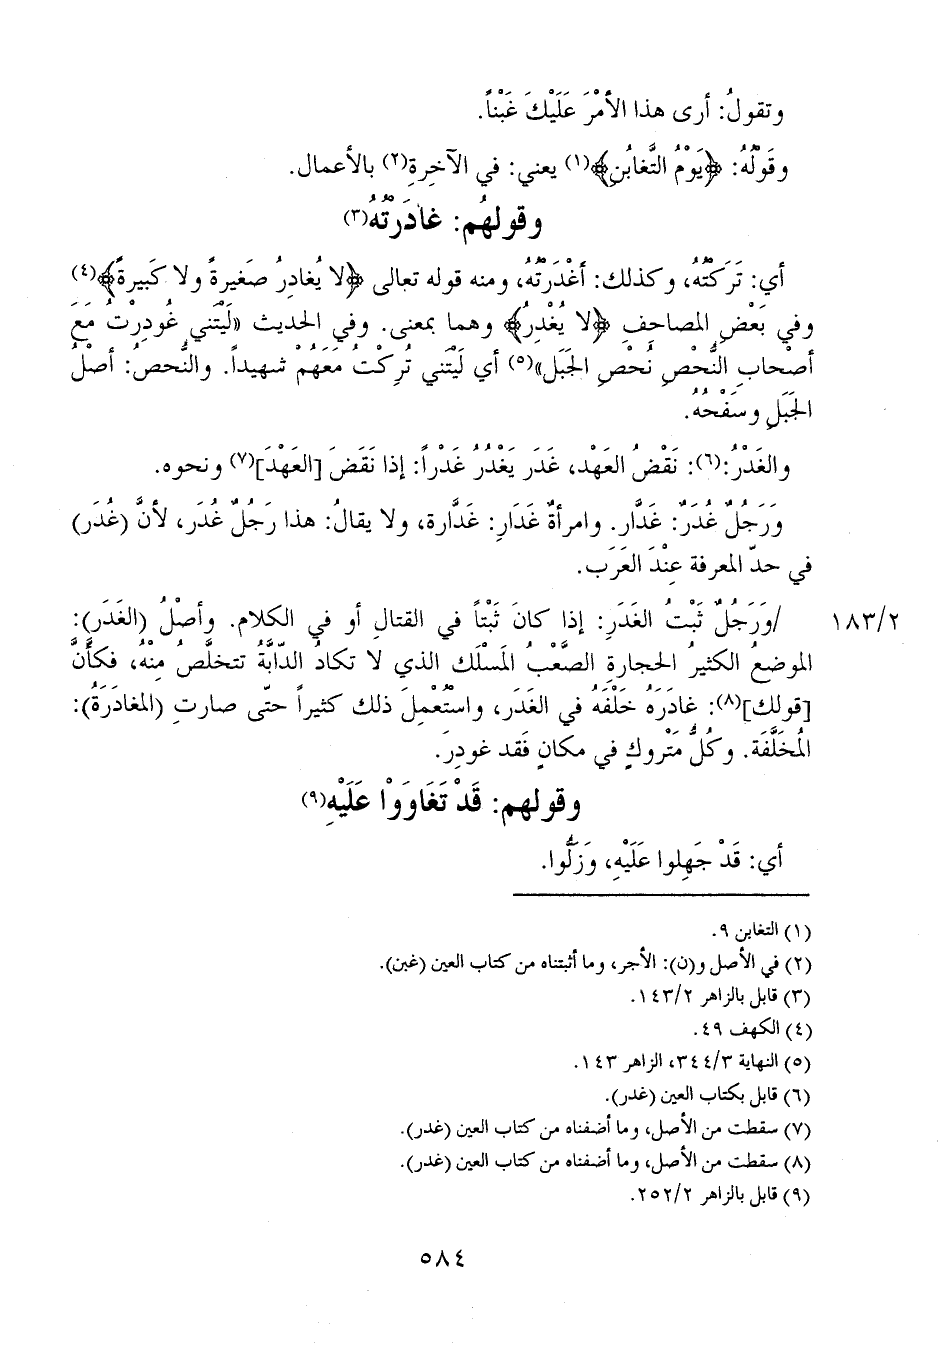 وتقولُ: أرى هذا الأمْرَ عَلَيْكَ غَبْناً.
وقَوْلُهُ: ﴿يَوْمُ التَّغابُنِ﴾(١) يعني: في الآخِرةِ(٢) بالأعمال.
وقولهُم: غادَرتْهُ(٣)
أي: تَرَكتُهُ، وكذلك: أغْدَرتُهُ، ومنه قوله تعالى ﴿لا يُغادِرُ صَغيرةً ولا كَبيرةً﴾(٤)
وفي بَعْضِ المصاحِفِ ﴿لا يُغْدِرُ﴾ وهما بمعنى. وفي الحديث «لَيْتَني غُودِرْتُ مَعَ
أصْحابِ النُّحْصِ نُحْصِ الجَبَل»(٥) أي لَيْتَني تُرِكْتُ مَعَهُمْ شهيداً. والنُّحصُ: أصْلُ
الجَبَلِ وسَفْحُهُ.
والغَدْرُ:(٦): نَقْضُ العَهْد، غَدَر يَغْدُرُ غَدْراً: إذا نَقَضَ [العَهْدَ](٧) ونحوه.
وَرَجُلٌ غُدَرٌ: غَدَّار. وامرأةٌ غَدَارِ: غَدَّارة، ولا يقالُ: هذا رَجُلٌ غُدَر، لأنَّ (غُدَر)
في حدِّ المعرفة عِنْدَ العَرَب.
١٨٣/٢ /وَرَجُلٌ ثَبْتُ الغَدَرِ: إذا كانَ ثَبْتاً في القتالِ أو في الكلام. وأصْلُ (الغَدَر):
الموضعُ الكثيرُ الحجارةِ الصَّعْبُ المَسْلَك الذي لا تكادُ الدّابَّةُ تتخلَّص مِنْهُ، فكأنَّ
[قولك](٨): غادَرَهُ خَلْفَهُ في الغَدَر، واسْتُعْمِلَ ذلك كثيراً حتّى صارتِ (المغادَرَةُ):
المُخَلَّفَة. وكُلُّ مَتْروكٍ في مكانٍ فَقد غودِرَ.
وقولهم: قَدْ تَغَاوَوْا عَلَيْهِ(٩)
أي: قَدْ جَهِلوا عَلَيْهِ، وَزَلُّوا.
(١) التغابن ٩.
(٢) في الأصل و(ن): الأجر، وما أثبتناه من كتاب العين (غبن).
(٣) قابل بالزاهر ١٤٣/٢.
(٤) الكهف ٤٩.
(٥) النهاية ٣٤٤/٣، الزاهر ١٤٣.
(٦) قابل بكتاب العين (غدر).
(٧) سقطت من الأصل، وما أضفناه من كتاب العين (غدر).
(٨) سقطت من الأصل، وما أضفناه من كتاب العين (غدر).
(٩) قابل بالزاهر ٢٥٢/٢.
٥٨٤